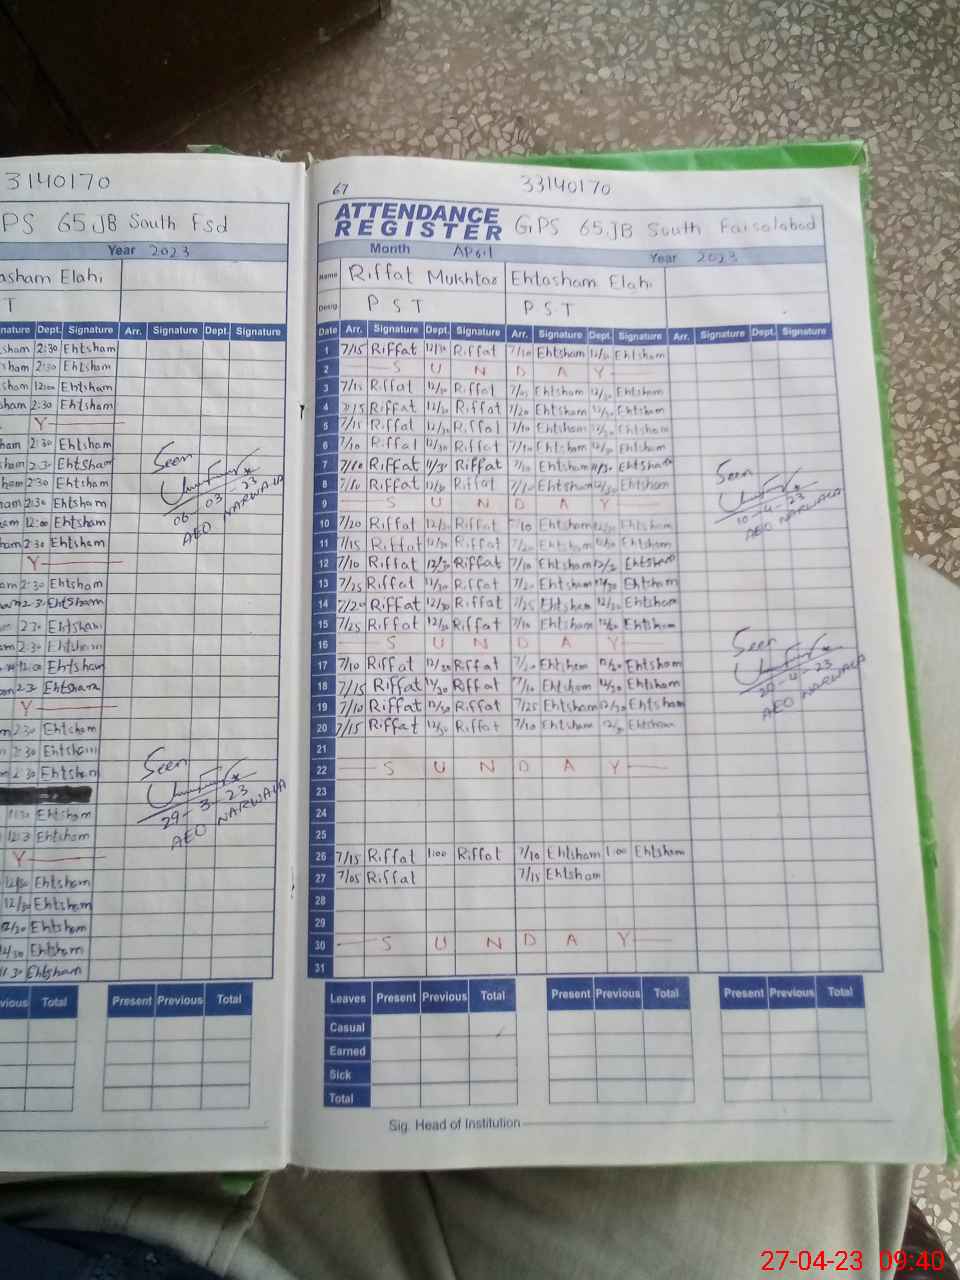 33140170
PS 65 JB South Fsd
Year 2023
asham Elahi
T
nature Dept. Signature Arr. Signature Dept. Signature
sham 2:30 Ehtsham
sham 2:30 Ehtsham
sham 12:00 Ehtsham
sham 2:30 Ehtsham
Y
ham 2:30 Ehtsham
Seen
sham 2:30 Ehtsham
ham 2:30 Ehtsham
06-03-23
AEO NARWALA
am 2:30 Ehtsham
am 12:00 Ehtsham
ham 2:30 Ehtsham
Y
am 2:30 Ehtsham
Ehtsham
Ehtsham
am 2:30 Ehtsham
12:00 Ehtsham
Ehtsham
Y
m 2:30 Ehtsham
n 2:30 Ehtsham
m 2:30 Ehtsham
Seen
29-3-23
AEO NARWALA
11:30 Ehtsham
Ehtsham
Y
12/30 Ehtsham
12/30 Ehtsham
12/30 Ehtsham
Ehtsham
11:30 Ehtsham
vious Total Present Previous Total
67 33140170
ATTENDANCE REGISTER GPS 65 JB South Faisalabad
Month April Year 2023
Name Riffat Mukhtar Ehtasham Elahi
Desig. P S T P.S.T
Date Arr. Signature Dept. Signature Arr. Signature Dept. Signature Arr. Signature Dept. Signature
1 7/15 Riffat 12/30 Riffat 7/10 Ehtsham 12/30 Ehtsham
2 S U N D A Y
3 7/15 Riffat 12/30 Riffat Ehtsham 12/30 Ehtsham
4 7/15 Riffat 12/30 Riffat 7/20 Ehtsham 12/30 Ehtsham
5 7/15 Riffat 12/30 Riffat 7/10 Ehtsham 12/30 Ehtsham
6 7/10 Riffat 12/30 Riffat 7/10 Ehtsham 12/30 Ehtsham
7 7/10 Riffat 11/30 Riffat 7/10 Ehtsham 11/30 Ehtsham
8 7/10 Riffat 12/30 Riffat 7/10 Ehtsham 12/30 Ehtsham
9 S U N D A Y
Seen
10-4-23
AEO NARWALA
10 7/20 Riffat 12/30 Riffat 7/10 Ehtsham 12/30 Ehtsham
11 7/15 Riffat 12/30 Riffat 7/20 Ehtsham 12/30 Ehtsham
12 7/10 Riffat 12/30 Riffat 7/10 Ehtsham Ehtsham
13 7/25 Riffat 12/30 Riffat 7/20 Ehtsham 12/30 Ehtsham
14 7/20 Riffat 12/30 Riffat 7/25 Ehtsham 12/30 Ehtsham
15 7/25 Riffat 12/30 Riffat 7/10 Ehtsham 12/30 Ehtsham
16 S U N D A Y
Seen
20-4-23
AEO NARWALA
17 7/10 Riffat 12/30 Riffat 7/20 Ehtsham 12/30 Ehtsham
18 7/15 Riffat Riffat 7/10 Ehtsham 12/30 Ehtsham
19 7/10 Riffat 12/30 Riffat 7/25 Ehtsham 12/30 Ehtsham
20 7/15 Riffat 12/30 Riffat 7/10 Ehtsham Ehtsham
21
22 S U N D A Y
23
24
25
26 7/15 Riffat 1:00 Riffat 7/10 Ehtsham 1:00 Ehtsham
27 7/05 Riffat 7/15 Ehtsham
28
29
30 S U N D A Y
31
Leaves Present Previous Total Present Previous Total Present Previous Total
Casual
Earned
Sick
Total
Sig. Head of Institution
27-04-23 09:40